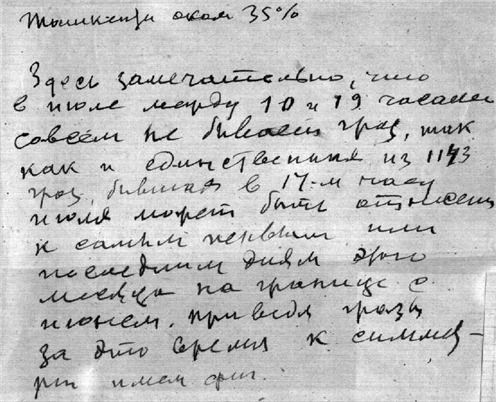 около 35%
Здесь замечательно, что
в июле между 10 и 19 часами
совсем не бывает гроз, так
как и единственная из 1143
гроз, бывшая в 17-м часу
июля может быть отнесена
к самым первым или
последним дням этого
месяца на границе с
июнем. приведя грозы
за это время к симмет-
рии имеем